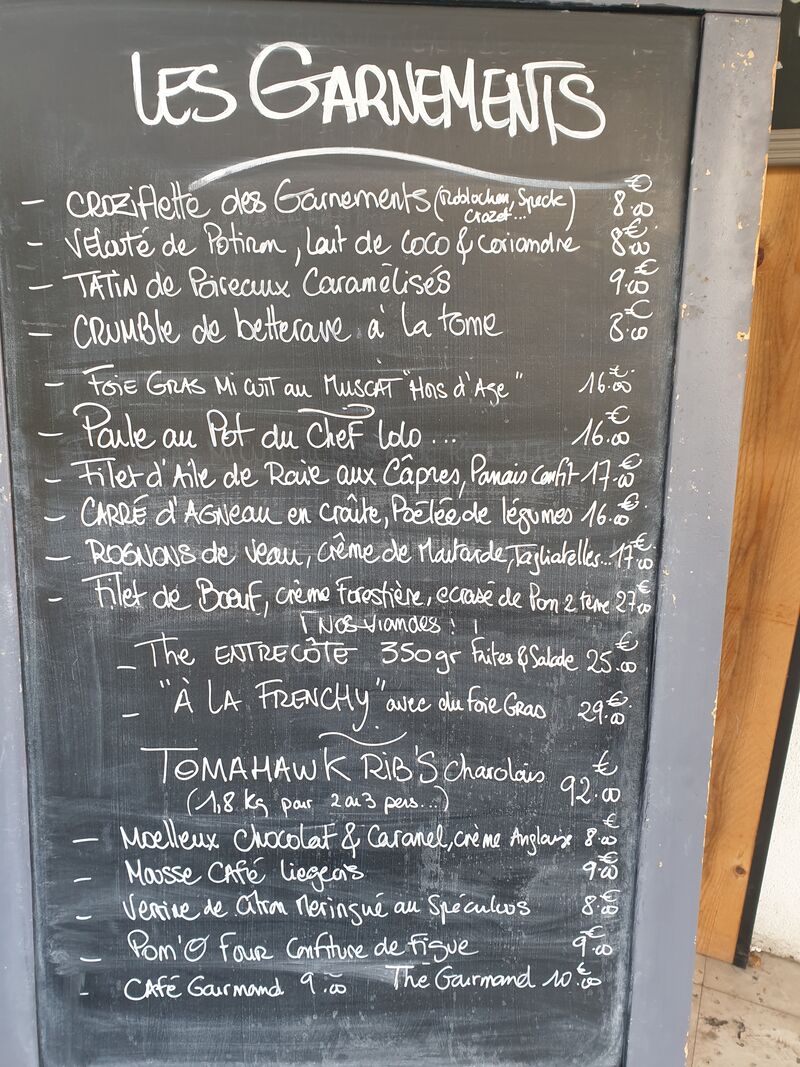 LES GARNEMENTS
- CROZIFLETTE des Garnements (Reblochon, Speck Crozet...) 8.00€
- Velouté de Potiron, Lait de Coco & Coriandre 8.00€
- TATIN de Poireaux Caramélisés 9.00€
- CRUMBLE de betterave à la tome 8.00€
- FOIE GRAS Mi CUIT au MUSCAT "Hors d'Age" 16.00€
- Poule au Pot du Chef Lolo... 16.00€
- Filet d'Aile de Raie aux Câpres, Panais Confit 17.00€
- CARRÉ d'AGNEAU en croûte, Poêlée de légumes 16.00€
- ROGNONS de Veau, crème de Moutarde, Tagliatelles... 17.00€
- Filet de Bœuf, crème Forestière, ecrasé de Pom 2 terre 27.00€
! Nos Viandes: !
- The ENTRECÔTE 350gr Frites & Salade 25.00€
- "À LA FRENCHY" avec du Foie Gras 29.00€
TOMAHAWK RIB'S Charolais 92.00€
(1,8 kg pour 2 ou 3 pers...)
- Moelleux Chocolat & Caramel, crème Anglaise 8.00€
- Mousse CAFÉ liegeois 9.00€
- Verrine de Citron Meringué au Spéculoos 8.00€
- Pom'O Four Confiture de Figue 9.00€
- CAFÉ Gourmand 9.00 The Gourmand 10.00€